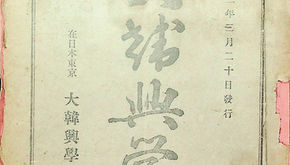 年三月二十日發行
興學
在日本東京
大韓興學